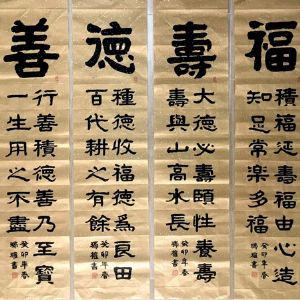 福
積福延壽福由心造
知足常樂多福
癸卯年春
書
壽
大德必壽頤性養壽
壽與山高水長
癸卯年春
書
德
種德收福德爲良田
百代耕之有餘
癸卯年春
書
善
行善積德善乃至寶
一生用之不盡
癸卯年春
書